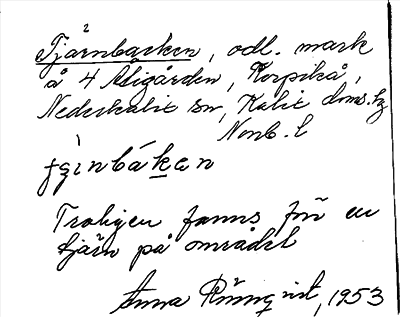 Tjärnbacken, odl. mark
å 4 Aligården, Korpikå,
Nederkalix sn, Kalix doms.
Norrb. l
Troligen fanns förr en
tjärn på området
Anna Rönnqvist, 1953